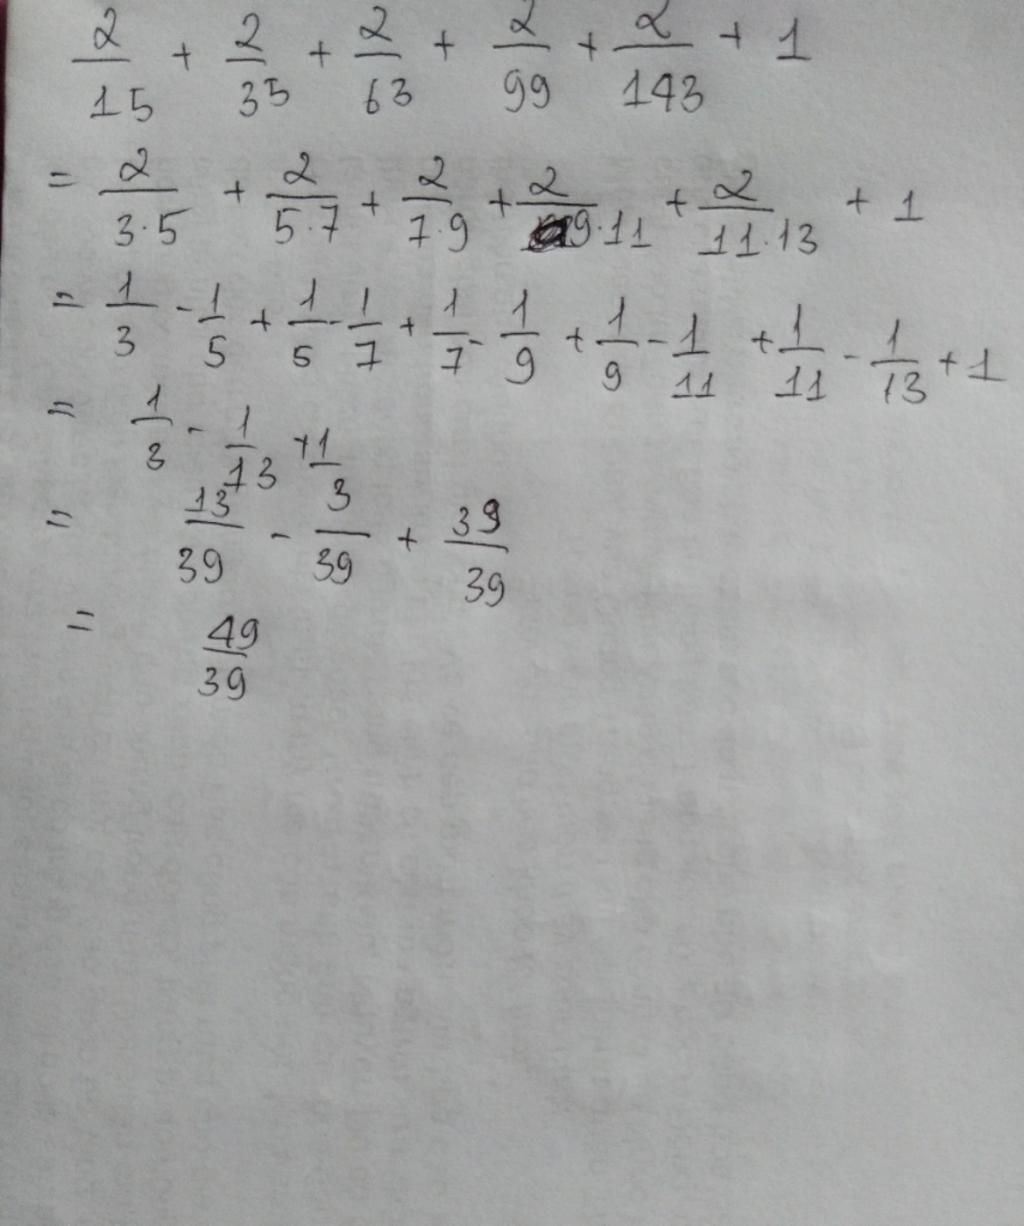 2/15 + 2/35 + 2/63 + 2/99 + 2/143 + 1
= 2/3·5 + 2/5·7 + 2/7·9 + 2/9·11 + 2/11·13 + 1
= 1/3 - 1/5 + 1/5 - 1/7 + 1/7 - 1/9 + 1/9 - 1/11 + 1/11 - 1/13 + 1
= 1/3 - 1/13 + 1
= 13/39 - 3/39 + 39/39
= 49/39